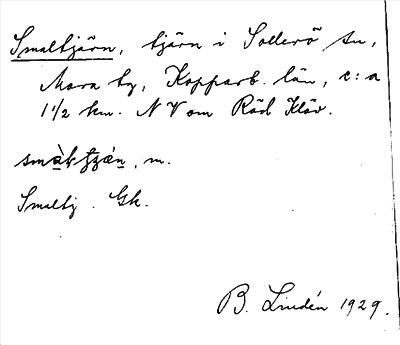 Smaltjärn, tjärn i Sollerö sn,
Mora tg, Kopparb. län, c:a
1 1/2 km. NV om Röd Klöv.
m.
Smaltj. Gk.
B. Lindén 1929.